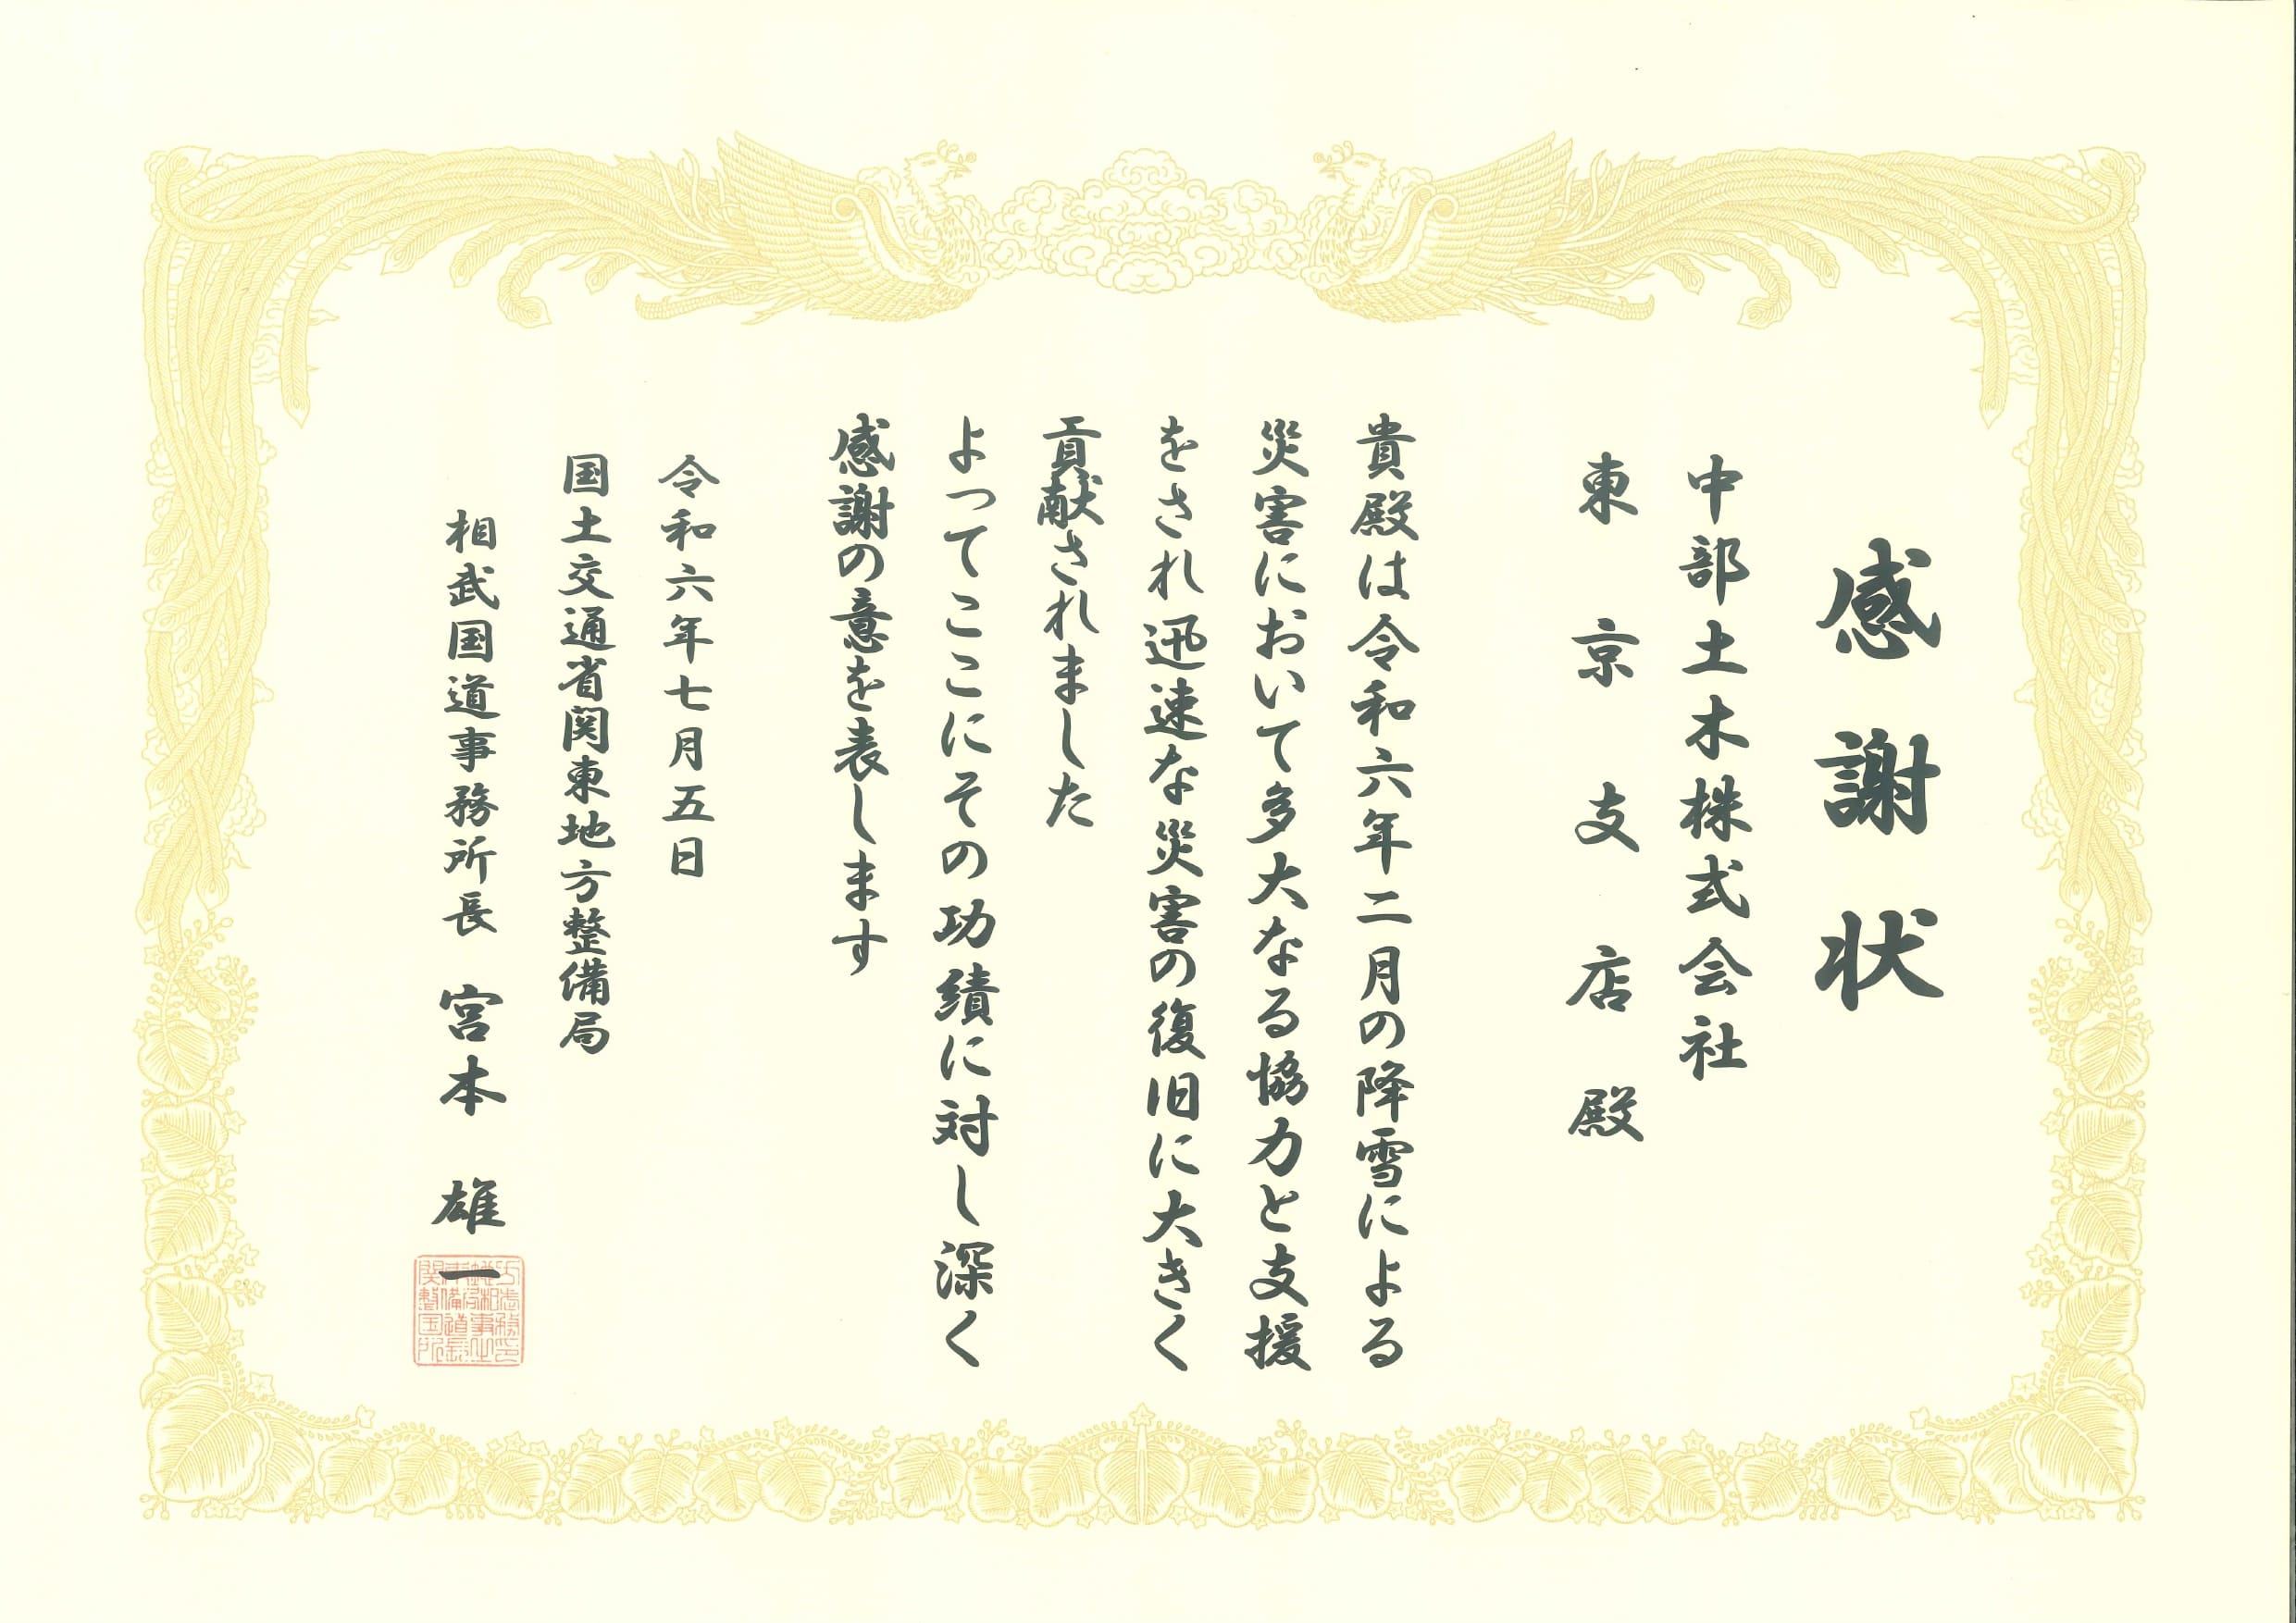 感謝状
中部土木株式会社
東京支店殿
貴殿は令和六年二月の降雪による
災害において多大なる協力と支援
をされ迅速な災害の復旧に大きく
貢献されました
よってここにその功績に対し深く
感謝の意を表します
令和六年七月五日
国土交通省関東地方整備局
相武国道事務所長 宮本 雄一